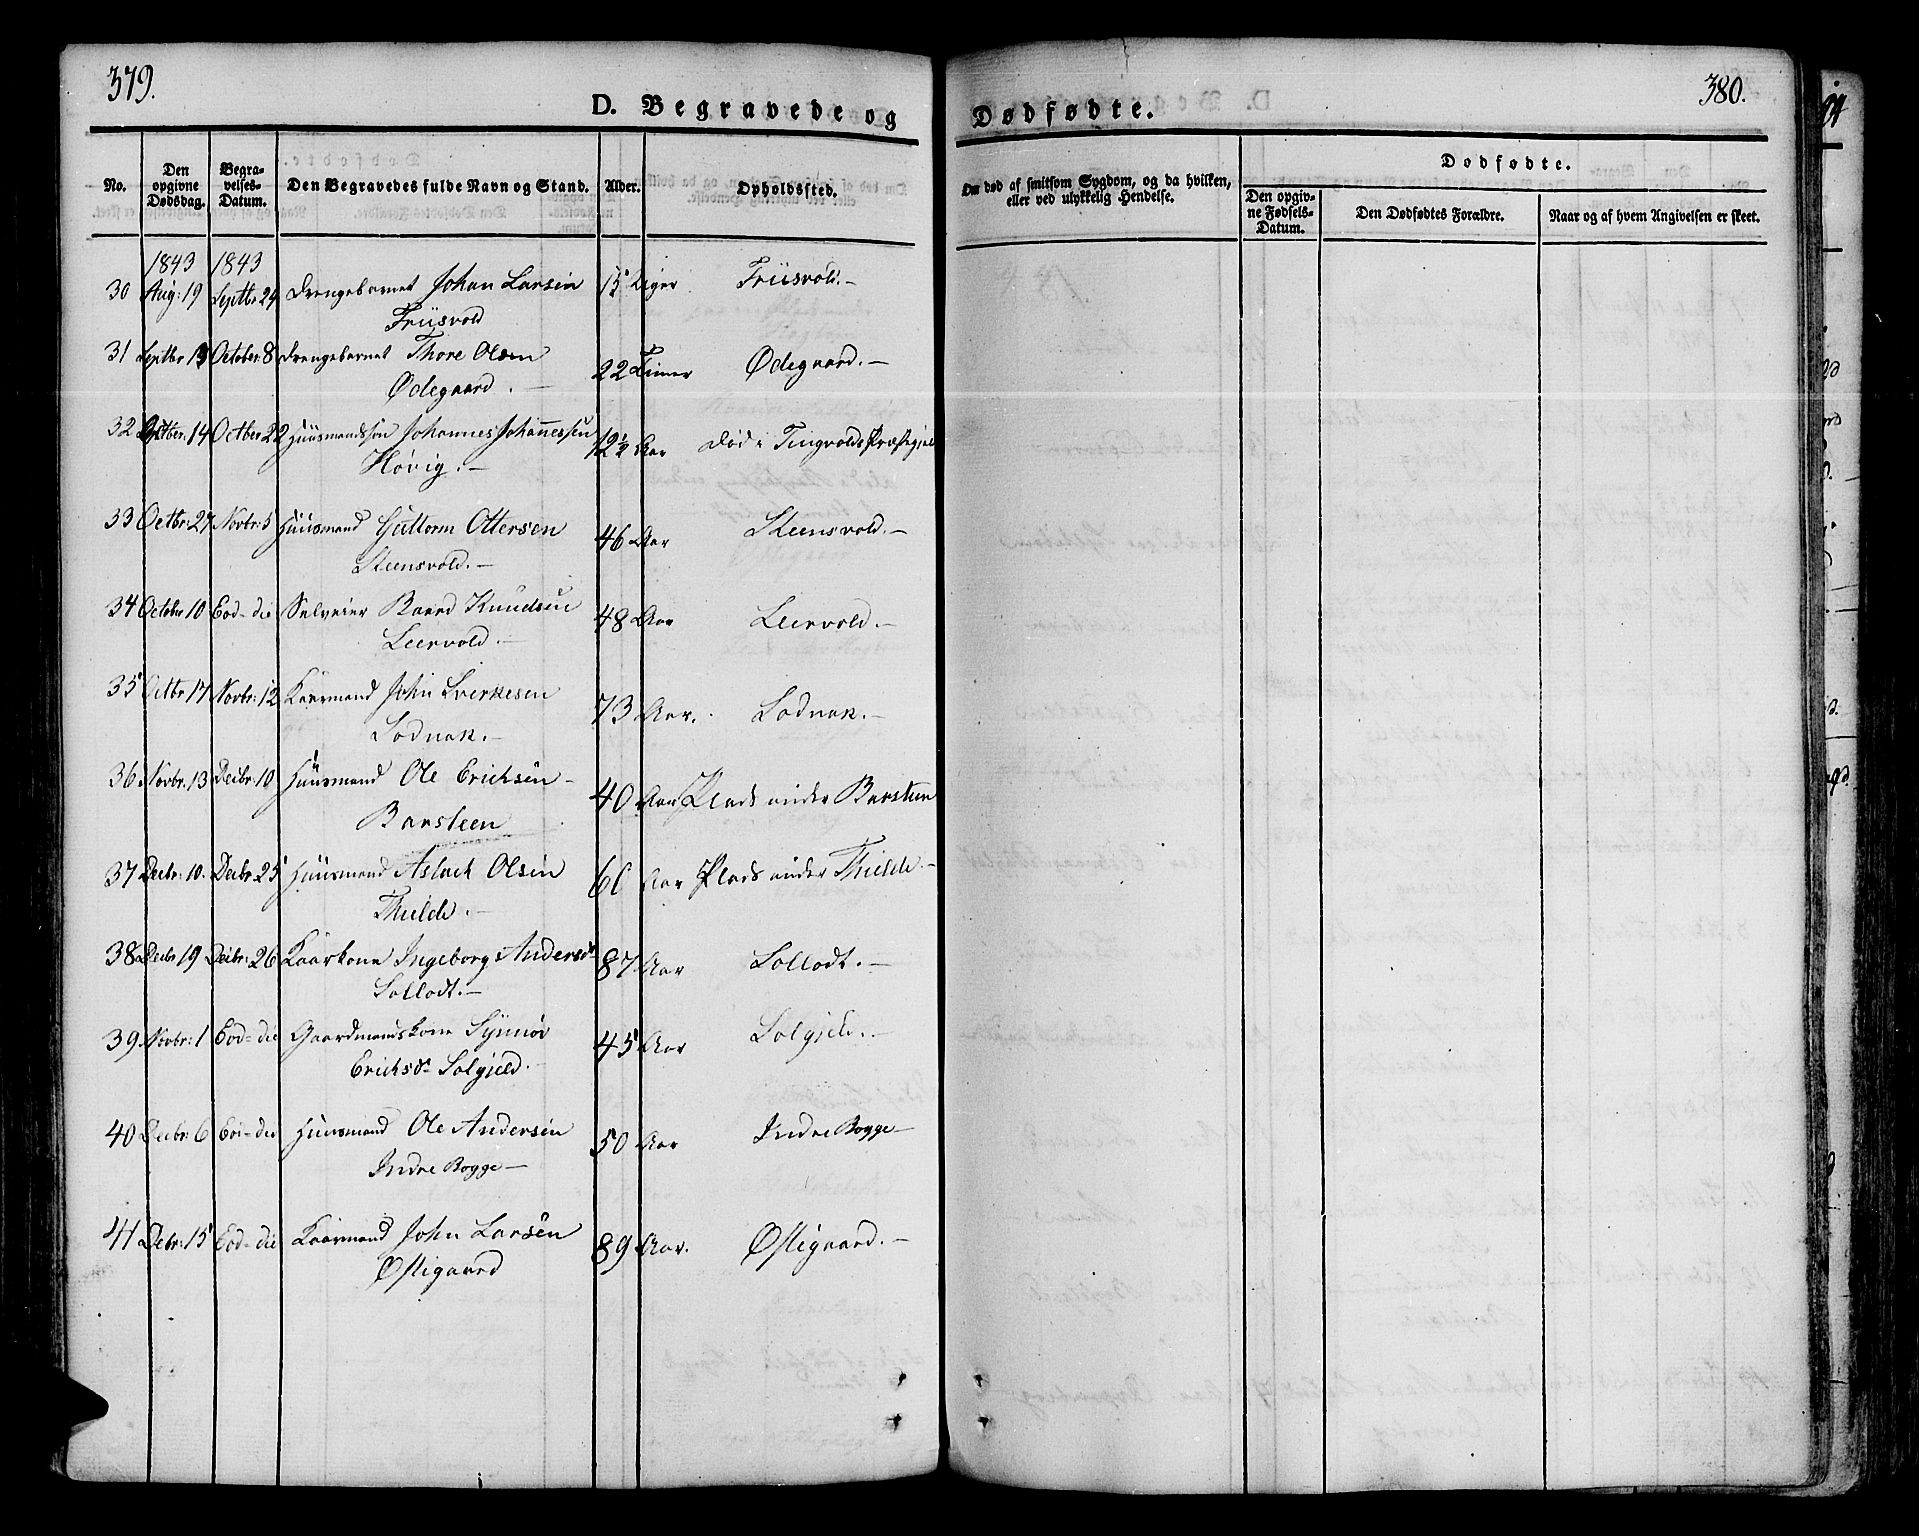 379.
D. Begravede og
No.
Den opgivne Dødsdag.
Begravelses-Datum.
Den Begravedes fulde Navn og Stand.
Alder.
Opholdssted.
1843 1843
30 Aug: 19 Septbr 24 Drengebarnet Johan Larsen 15 Uger Friisvold.—
Friisvold
31 Septbr 13 October 8 Drengebarnet Thore Olsen 22 Timer Ødegaard.—
Ødegaard.—
32 Octber 14 Octber 22 Huusmandssøn Johannes Johannessen 12½ Aar Død i Tingvolds Præstegjeld
Høvig.—
33 Octbr: 27 Novbr: 5 Huusmand Guttorm Ottersen 46 Aar Steensvold.—
Steensvold.—
34 Octobr 10 Eod= die Selveier Baard Knudsen 48 Aar Leervold.—
Leervold.—
35 Octbr 17 Novbr: 12 Kaarmand John Sverkesen 73 Aar. Sodnak.—
Sodnak.—
36 Novbr. 13 Decbr: 10 Huusmand Ole Erichsen— 40 Aar Plads under Barsteen
Barsteen
37 Decbr: 10. Decbr: 25 Huusmand Aslack Olsen 60 Aar Plads under Thielde.—
Thielde.—
38 Decbr 19 Decbr: 26 Kaarkone Ingeborg Andersdr 87 Aar Sollodt.—
Sollodt.—
39 Novbr: 1 Eod= die Gaardmandskone Synnør 45 Aar Solgjeld.
Ericksdr Solgjeld.
40 Decbr: 6 Eod= die Huusmand Ole Andersen 50 Aar Indre Bogge—
Indre Bogge—
41 Debr: 15 Eod= die Kaarmand John Larsen 89 Aar. Østigaard.—
Østigaard
380.
Dødfødte.
Om død af smitsom Sygdom, og da hvilken,
eller ved ulykkelig Hendelse.
Dødfødte.
Den opgivne Fødsels-Datum.
Den Dødfødtes Forældre.
Naar og af hvem Angivelsen er skeet.